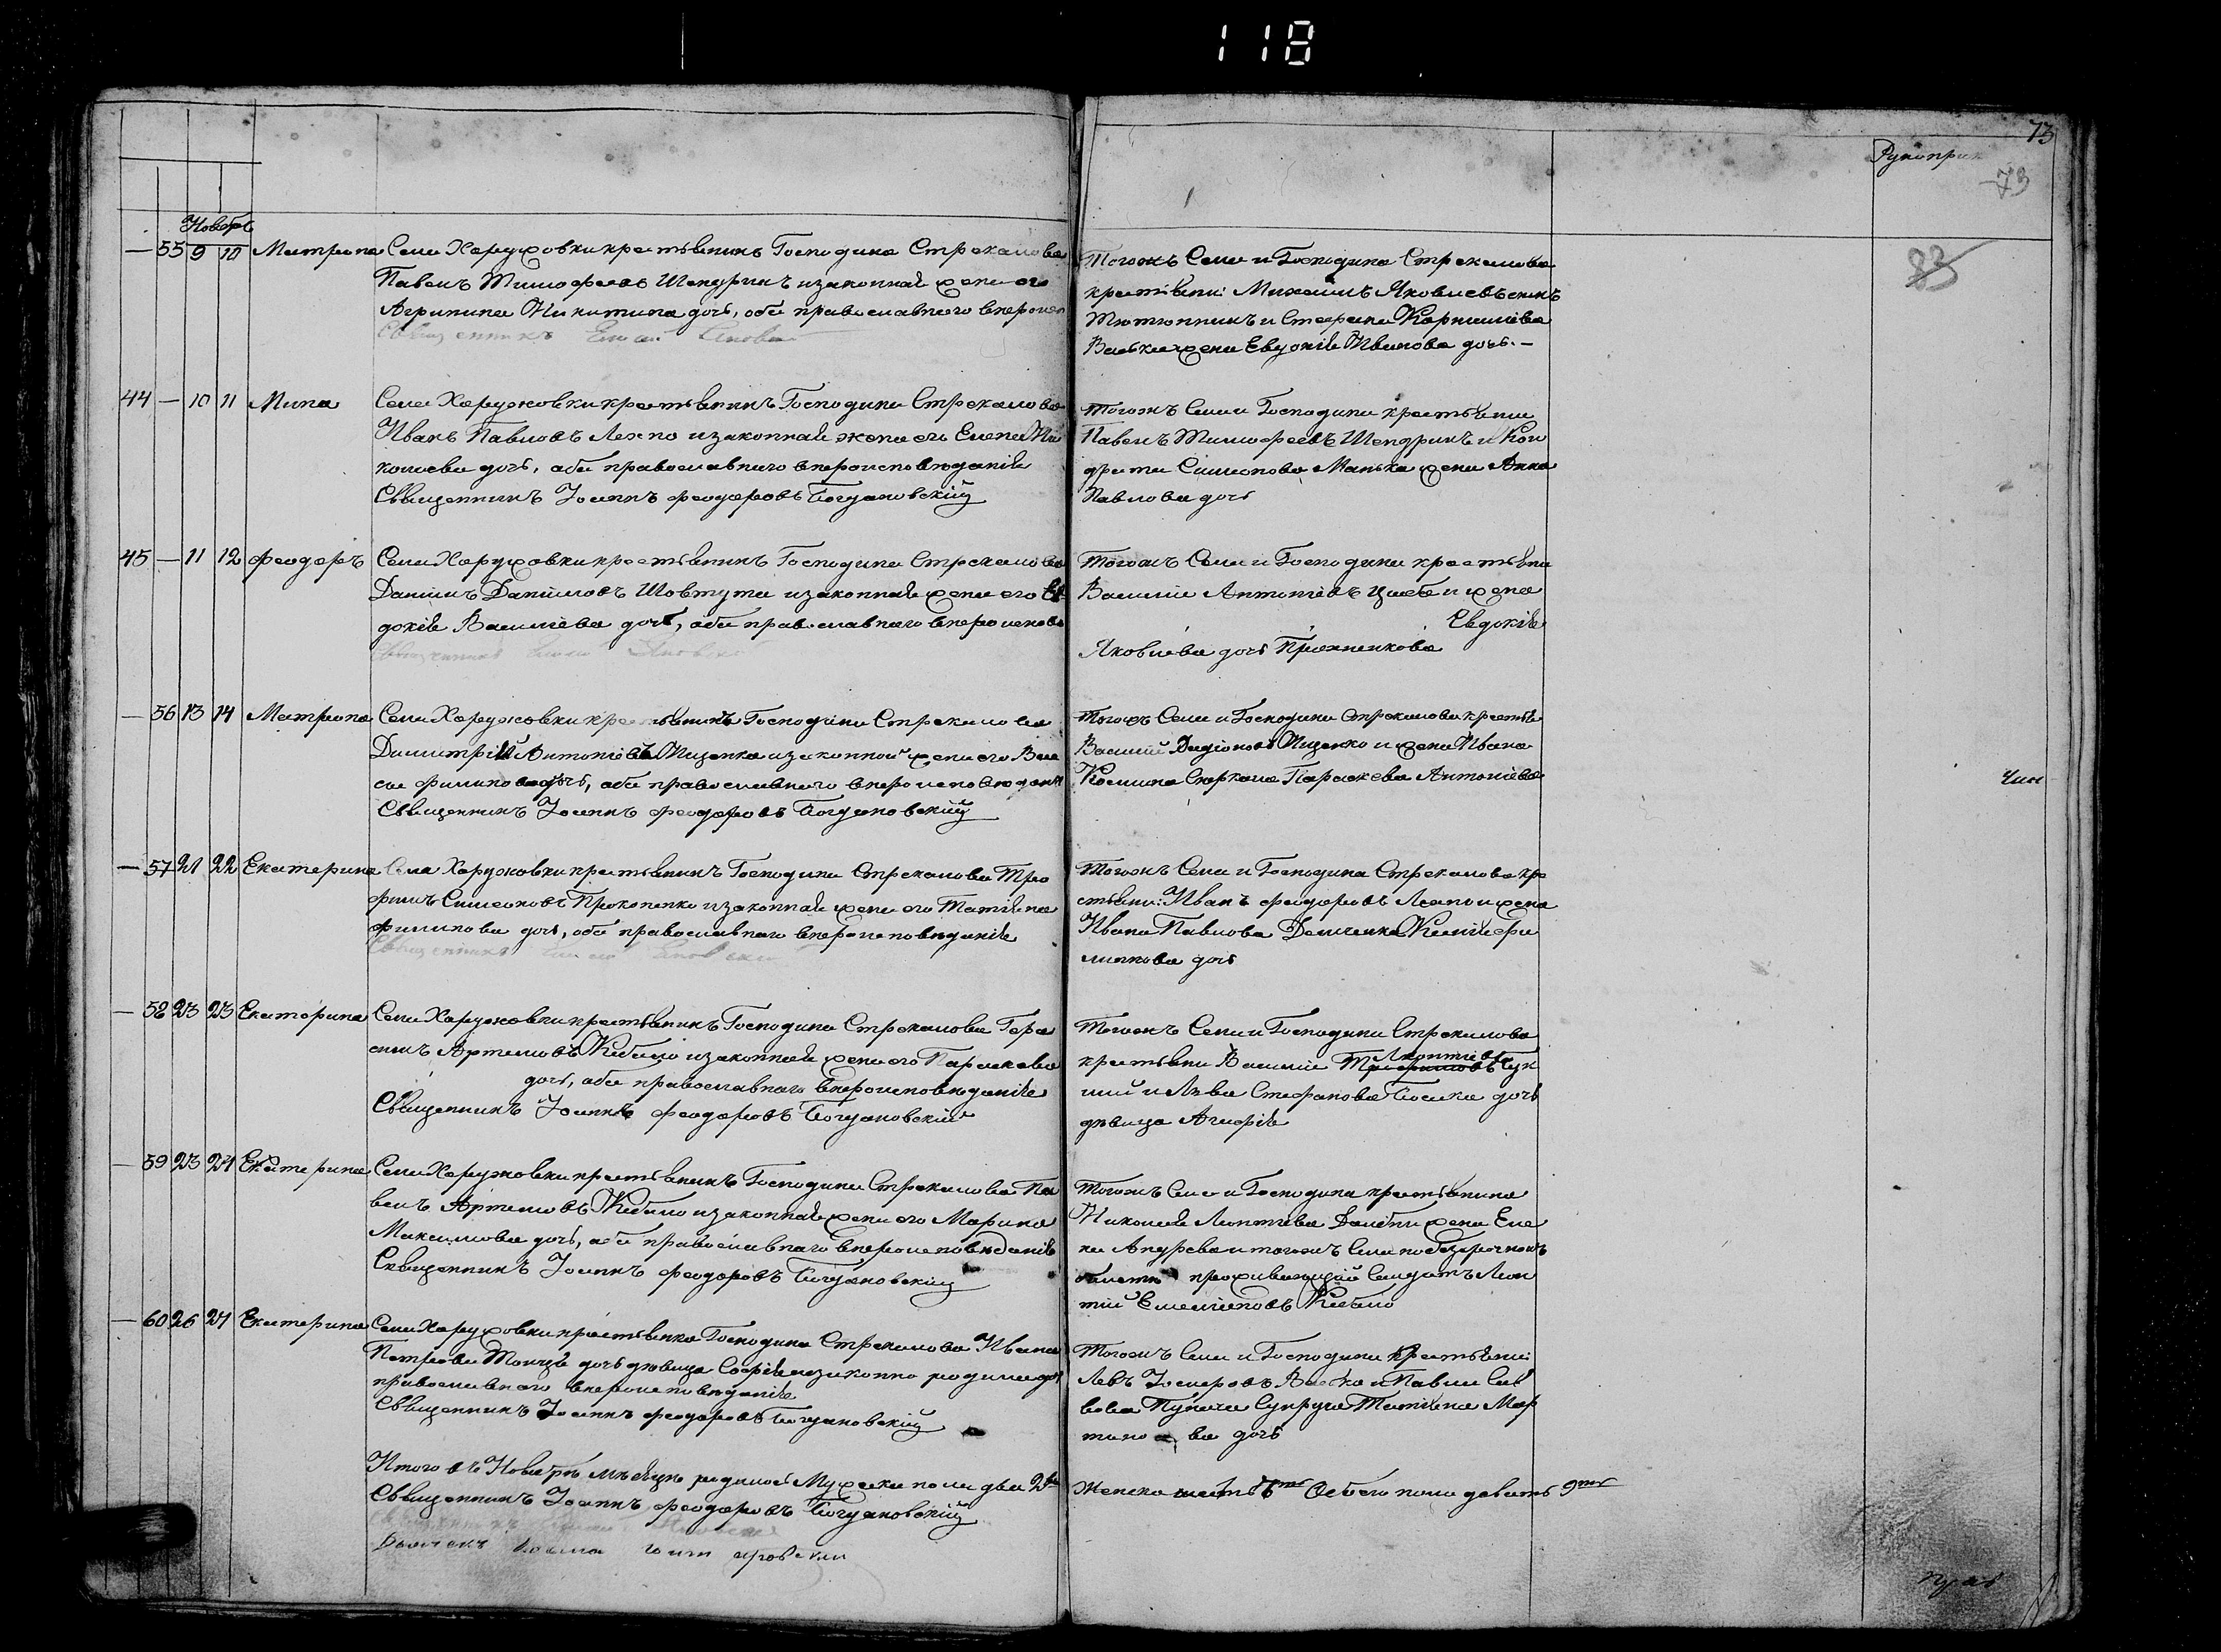 118
73
Рукоприк
73
83
Новабрь
— 55 9 10 Матрона Села Харужовки крестьянинъ Господина Стрекалова
Павелъ Тимофеевъ Шендрикъ изаконная жена его
Агрипина Никитина дочь, оба православнаго вероисп
Священникъ
Тогожъ Села и Господина Стрекалова
крестьяни: Михаилъ Яковлевъ
Тютюнникъ и Стефана Корнилиева
Васька жена Евдокія Иванова дочь.—
44 — 10 11 Мина Села Харужовки крестьянинъ Господина Стрекалова
Иванъ Павловъ Ляхно изаконная жена его Елена Ни
колаева дочь, оба православнаго вероисповѣданія
Священникъ Іоаннъ Феодоровъ Богдановскій
Тогожъ Села и Господина крестьяне
Павелъ Тимофеевъ Шендрикъ и Кон
драта Симеонова Манька жена Анна
Павлова дочь
45 — 11 12 Феодоръ Села Харужовки крестьянинъ Господина Стрекалова
Данилъ Даниловъ Шовтута изаконная жена его Ев
докія Василіева дочь, оба православнаго вероиспов
Священникъ
Тогожъ Села и Господина крестьяни
Василій Антоніевъ Цюба и жена
Евдокія
Яковлева дочь
— 56 13 14 Матрона Села Харужовки крестьянинъ Господина Стрекалова
Димитрій Антоніевъ Ищенко изаконной жены его Васи
са Филипова дочь, оба православнаго вероисповѣдані
Священникъ Іоаннъ Феодоровъ Богдановскій
Тогожъ Села и Господина Стрекалова крестья
Василій Ищенко и жена Ивана
Космина Параскева Антоніева
— 57 21 22 Екатерина Села Харужовки крестьянинъ Господина Стрекалова Тро
фимъ Симеоновъ Прокопенко изаконная жена его Татіяна
Филипова дочь, оба православнаго вероисповѣданія
Священникъ
Тогожъ Села и Господина Стрекалова кре
стьяни: Иванъ Феодоровъ Ляхно и жена
Ивана Павлова Демченка Ксенія Фи
липова дочь
— 58 23 23 Екатерина Села Харужовки крестьянинъ Господина Стрекалова Гера
симъ Артемовъ Кибало изаконная жена его Параскева
дочь, оба православнаго вероисповѣданія
Священникъ Іоаннъ Феодоровъ Богдановскій
Тогожъ Села и Господина Стрекалова
Леонтіевъ
крестьяни Василій Трофимовъ
и Льва Стефанова дочь
дѣвица Агафія
— 59 23 24 Екатерина Села Харужовки крестьянинъ Господина Стрекалова Па
велъ Артемовъ Кибало изаконная жена его Марина
Максимова дочь, оба православнаго вероисповѣданія
Священникъ Іоаннъ Феодоровъ Богдановскій
Тогожъ Села и Господина крестьянина
Николая Леонтіева жена Еле
на Андрева и тогожъ Села по безсрочномъ
билету проживающій Салдатъ Леон
тій Кибало
— 60 26 27 Екатерина Села Харужовки крестьянка Господина Стрекалова Ивана
Петрова дочь дѣвица Софія незаконно родила дочь
православнаго вероисповѣданія
Священникъ Іоаннъ Феодоровъ Богдановскій
Тогожъ Села и Господина крестьяни:
Левъ Васько и Павла Сав
вова Супруга Татіяна Мар
тинова дочь
Итого въ Новабрѣ мѣсяцѣ родилось Мужеска пола два 2
Священникъ Іоаннъ Феодоровъ Богдановскій
Женска шесть 6 Обоего пола девять 9
Дьячекъ